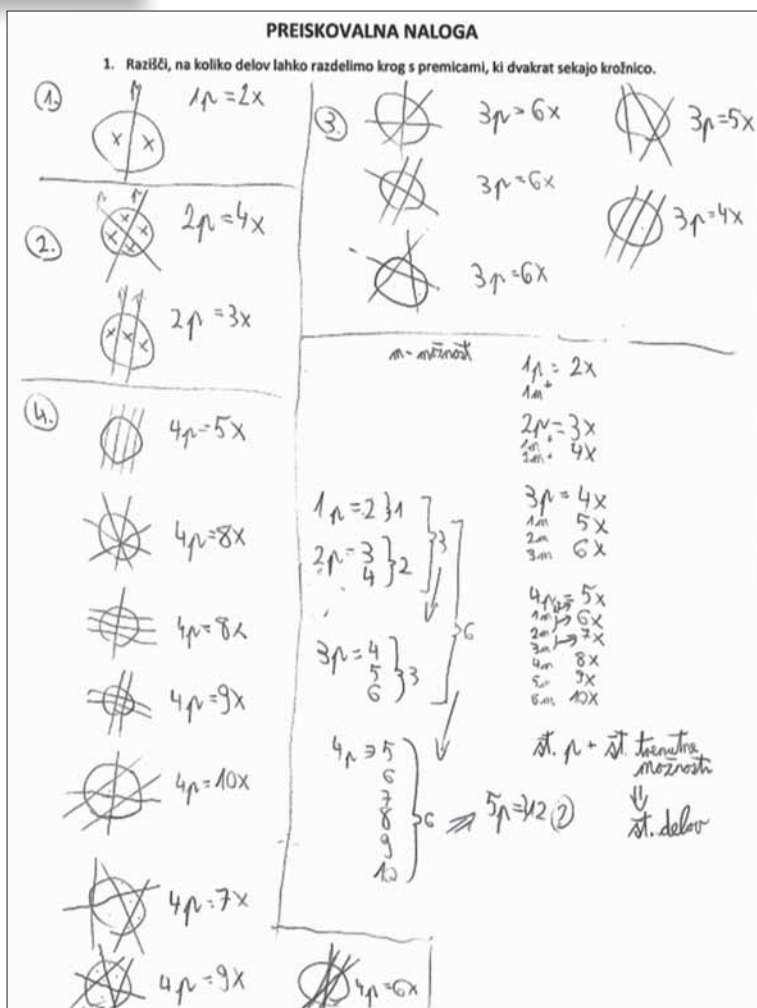 PREISKOVALNA NALOGA
1. Razišči, na koliko delov lahko razdelimo krog s premicami, ki dvakrat sekajo krožnico.
1.
p
1p = 2x
x x
2.
p p
2p = 4x
x x x x
2p = 3x
x x x
3.
3p = 6x
3p = 6x
3p = 6x
3p = 5x
3p = 4x
4.
4p = 5x
4p = 8x
4p = 8x
4p = 9x
4p = 10x
4p = 7x
4p = 9x
4p = 6x
m - možnost
1p = 2x
1m
2p = 3x
1m
2m 4x
3p = 4x
1m 5x
2m 6x
3m
4p = 5x
1m → 6x
2m → 7x
3m
4m 8x
5m 9x
6m 10x
1p = 2 } 1
2p = 3
4 } 2
3
3p = 4
5
6 } 3
6
4p ⇒ 5
6
7
8
9
10
} 6 ⇒ 5p = 12 ?
št. p + št. trenutne
možnosti
⇓
št. delov